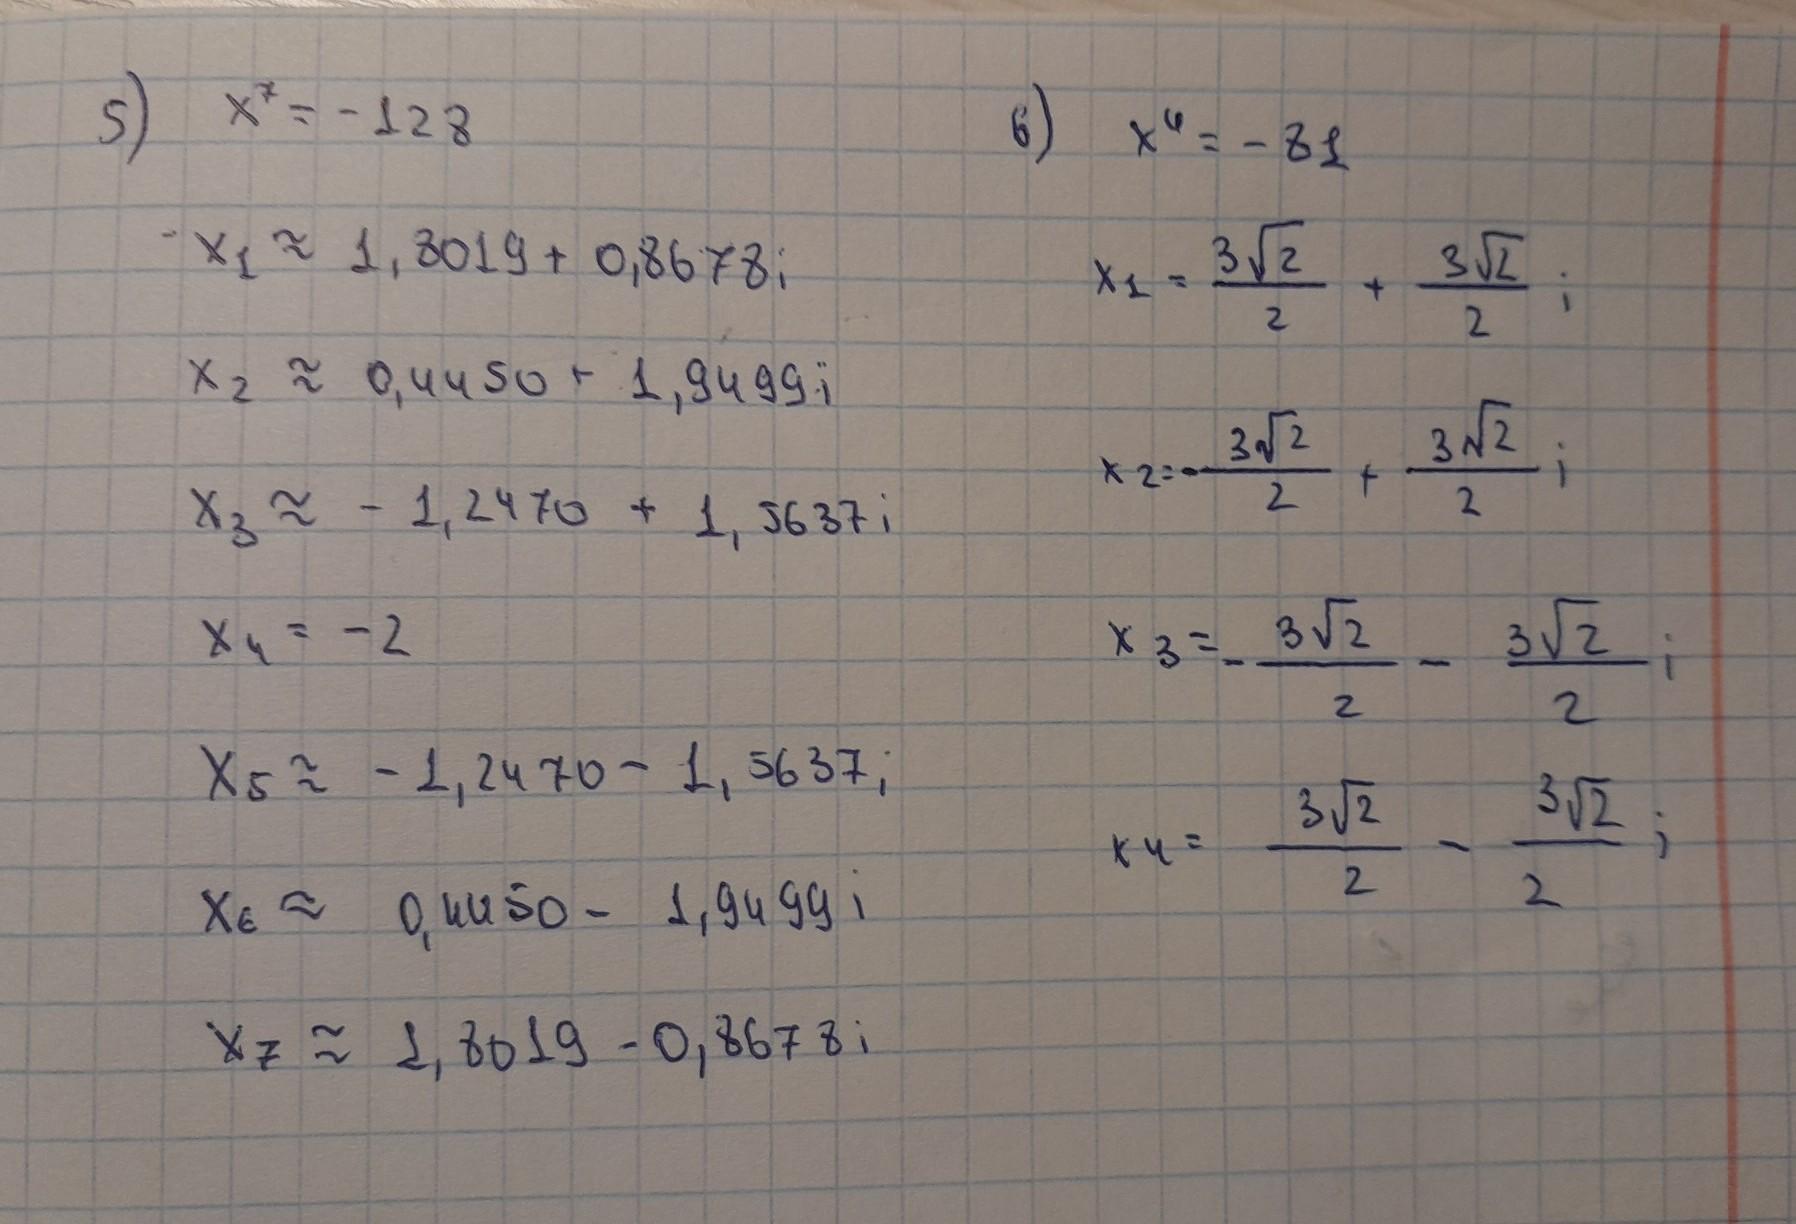 5) x⁷ = -128
x₁ ≈ 1,8019 + 0,8678i
x₂ ≈ 0,4450 + 1,9499i
x₃ ≈ -1,2470 + 1,5637i
x₄ = -2
x₅ ≈ -1,2470 - 1,5637i
x₆ ≈ 0,4450 - 1,9499i
x₇ ≈ 1,8019 - 0,8678i
6) x⁴ = -81
x₁ = 3√2/2 + 3√2/2 i
x₂ = -3√2/2 + 3√2/2 i
x₃ = -3√2/2 - 3√2/2 i
x₄ = 3√2/2 - 3√2/2 i